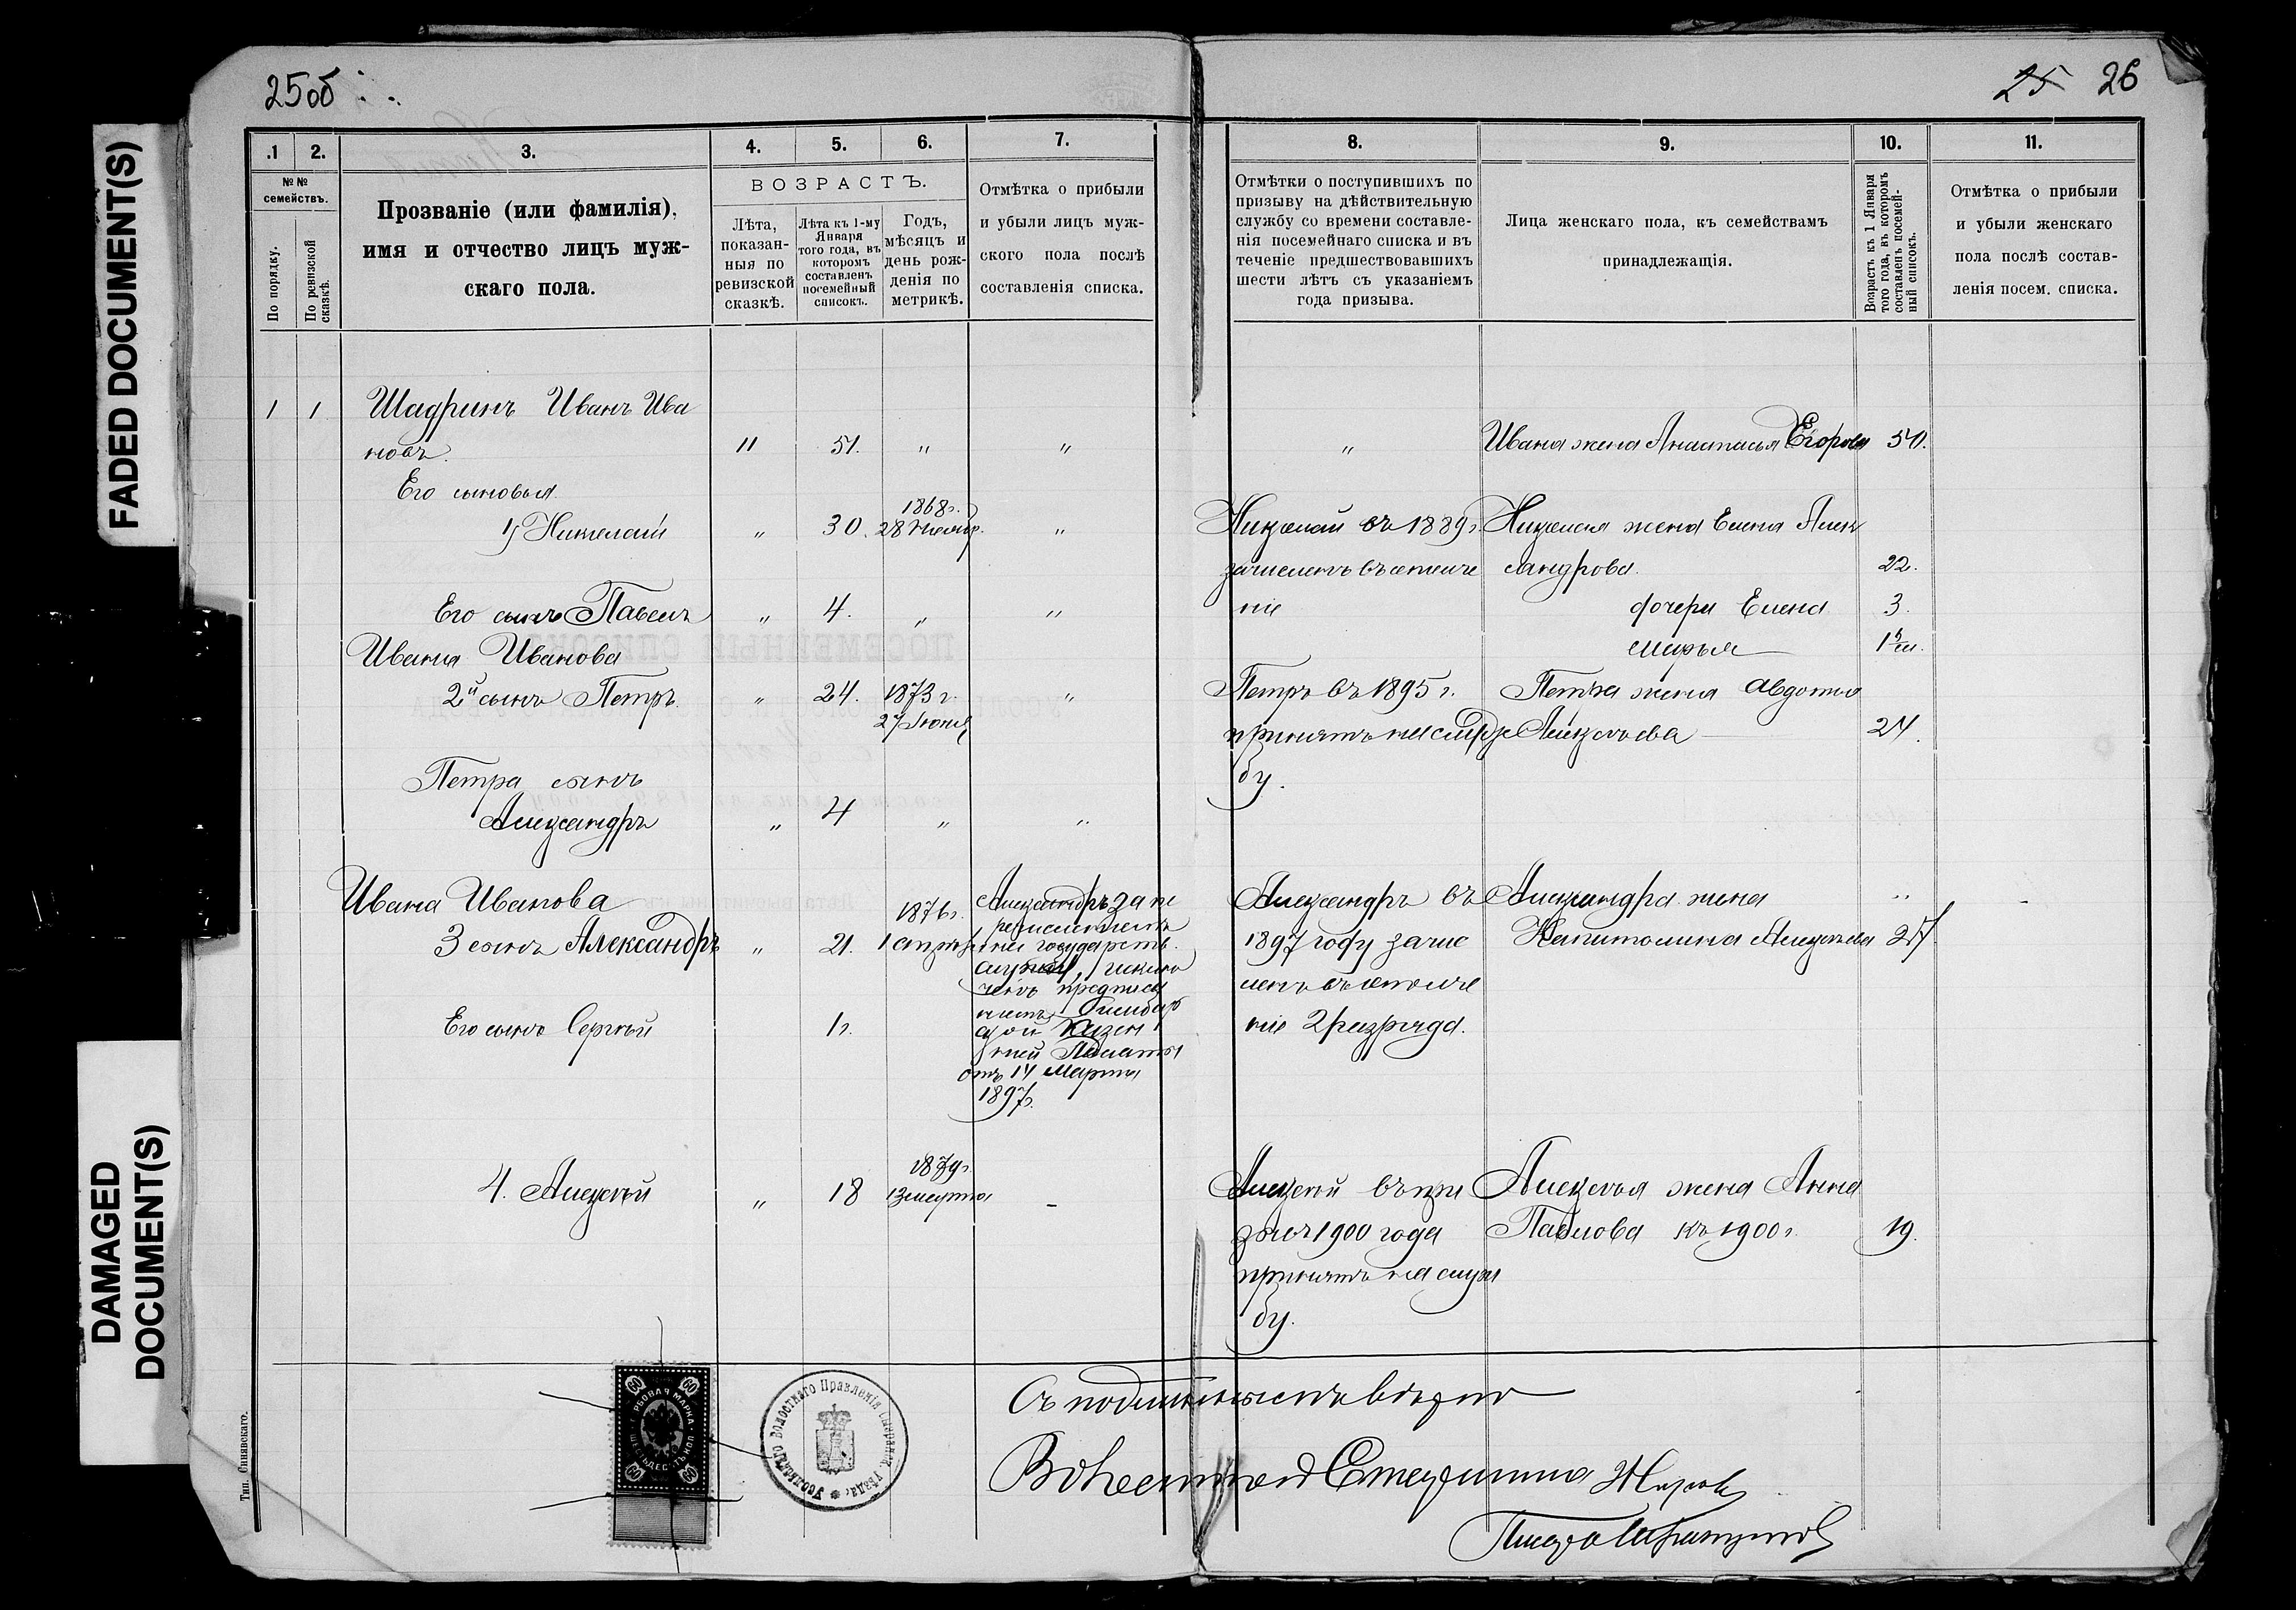 FADED DOCUMENT(S)
DAMAGED
DOCUMENT(S)
25об
25 26
1. 2. 3. 4. 5. 6. 7. 8. 9. 10. 11.
№№ семействъ.
По порядку.
По ревизской сказкѣ.
Прозваніе (или фамилія),
имя и отчество лицъ муж-
скаго пола.
ВОЗРАСТЪ.
Лѣта,
показан-
ныя по
ревизской
сказкѣ.
Лѣта къ 1-му
Января
того года, въ
которомъ
составленъ
посемейный
списокъ.
Годъ,
мѣсяцъ и
день рож-
денія по
метрикѣ.
Отмѣтка о прибыли
и убыли лицъ муж-
ского пола послѣ
составленія списка.
Отмѣтки о поступившихъ по
призыву на дѣйствительную
службу со времени составле-
нія посемейнаго списка и въ
теченіе предшествовавшихъ
шести лѣтъ съ указаніемъ
года призыва.
Лица женскаго пола, къ семействамъ
принадлежащія.
Возрастъ къ 1 Января
того года, въ которомъ
составленъ посемей-
ный списокъ.
Отмѣтка о прибыли
и убыли женскаго
пола послѣ состав-
ленія посем. списка.
1 1 Шадринъ Иванъ Ива
новъ. " 51. " " " Ивана жена Анастасья Егорова 50.
Его сыновья
1868г.
1) Николай " 30. 28 " Николай въ 1889г. Николая жена Елена Алек
зачисленъ въ ополче сандрова. 22.
Его сынъ Павелъ " 4. " " ніе дочери Елена 3.
Ивана Иванова Марья 1
2й сынъ Петръ " 24. 1873 г. " Петръ въ 1895 г. Петра жена Авдотья
27 Іюня принятъ на служ Алексѣева 24.
бу.
Петра сынъ
Александръ " 4 " "
Ивана Иванова 1876г. Александръ Александръ въ Александра жена "
3 сынъ Александръ " 21. 1 апрѣл. 1897 году зачис Капитолина Алексѣева
государств.
исклю
ченъ предписа
ніемъ Симбир
ской Казен
ной Палаты
отъ 14 Марта
1897г.
ленъ въ ополче
Его сынъ Сергѣй 1г. ніе 2 разряда.
1879г.
4. Алексѣй " 18 13 марта - Алексѣй въ при Алексѣя жена Анна
зывъ 1900 года Павлова къ 1900г. 19.
принятъ на служ
бу.
Съ подлиннымъ вѣрно
Волостной Старшина Жарковъ
Писарь
60 60
60 60
Усольскаго Волостнаго Правленія Сызранск. уѣзда
Тип. Синявскаго.